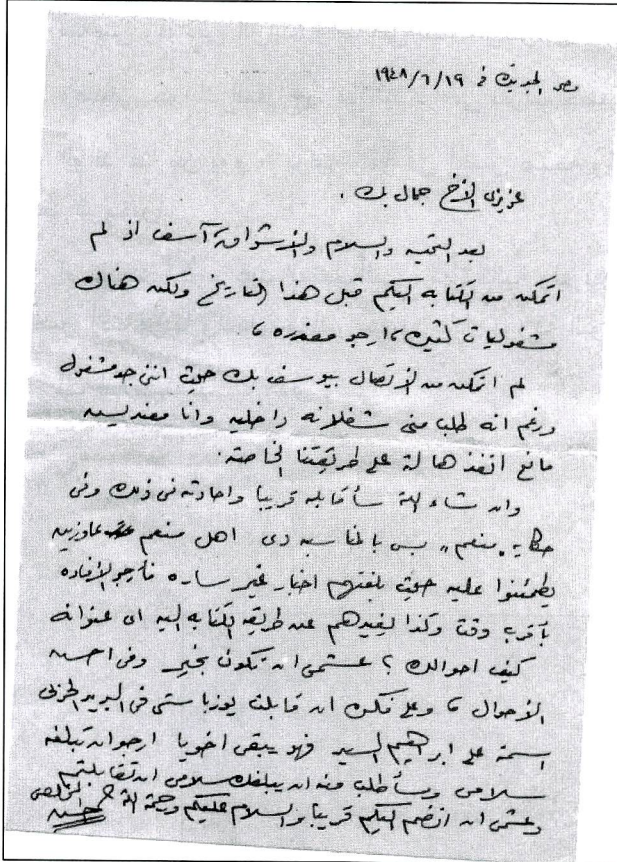 مصر الجديدة فى ١٩/٦/١٩٤٨
عزيزى الأخ جمال بك .
بعد التحيه والسلام والأشواق آسف اذ لم
اتمكن من الكتابه اليكم قبل هذا التاريخ ولكن هناك
مشغوليات كثيره ، ارجو معذره ،
لم اتمكن من الأتصال بيوسف بك حيث اننى جد مشغول
ورغم انه طلب منى شغلانه داخليه وانا معنديش
مانع انفذها له على طريقتنا الخاصة .
وان شاء الله سأقابله قريبا واحادثه فى ذلك وفى
حكاية "منعم" بس بالمناسبه دى اهل منعم عاوزين
يطمئنوا عليه حيث بلغتهم اخبار غير ساره فأرجو الأفاده
بأقرب وقت وكذا يفيدهم عن طريق الكتابه اليه اى عنوانه
كيف احوالك ؟ عشمى ان تكون بخير وفى احسن
الأحوال ، وعلى فكره ان قابلت يوزباشى فى البريد الحربى
اسمه على ابراهيم السيد فهو يبقى اخويا ارجو ان تبلغه
سلامى وسأطلب منه ان يبلغك سلامى ان تقابلتم
وعشمى ان انضم اليكم قريبا والسلام عليكم ورحمة الله المخلص
حسن